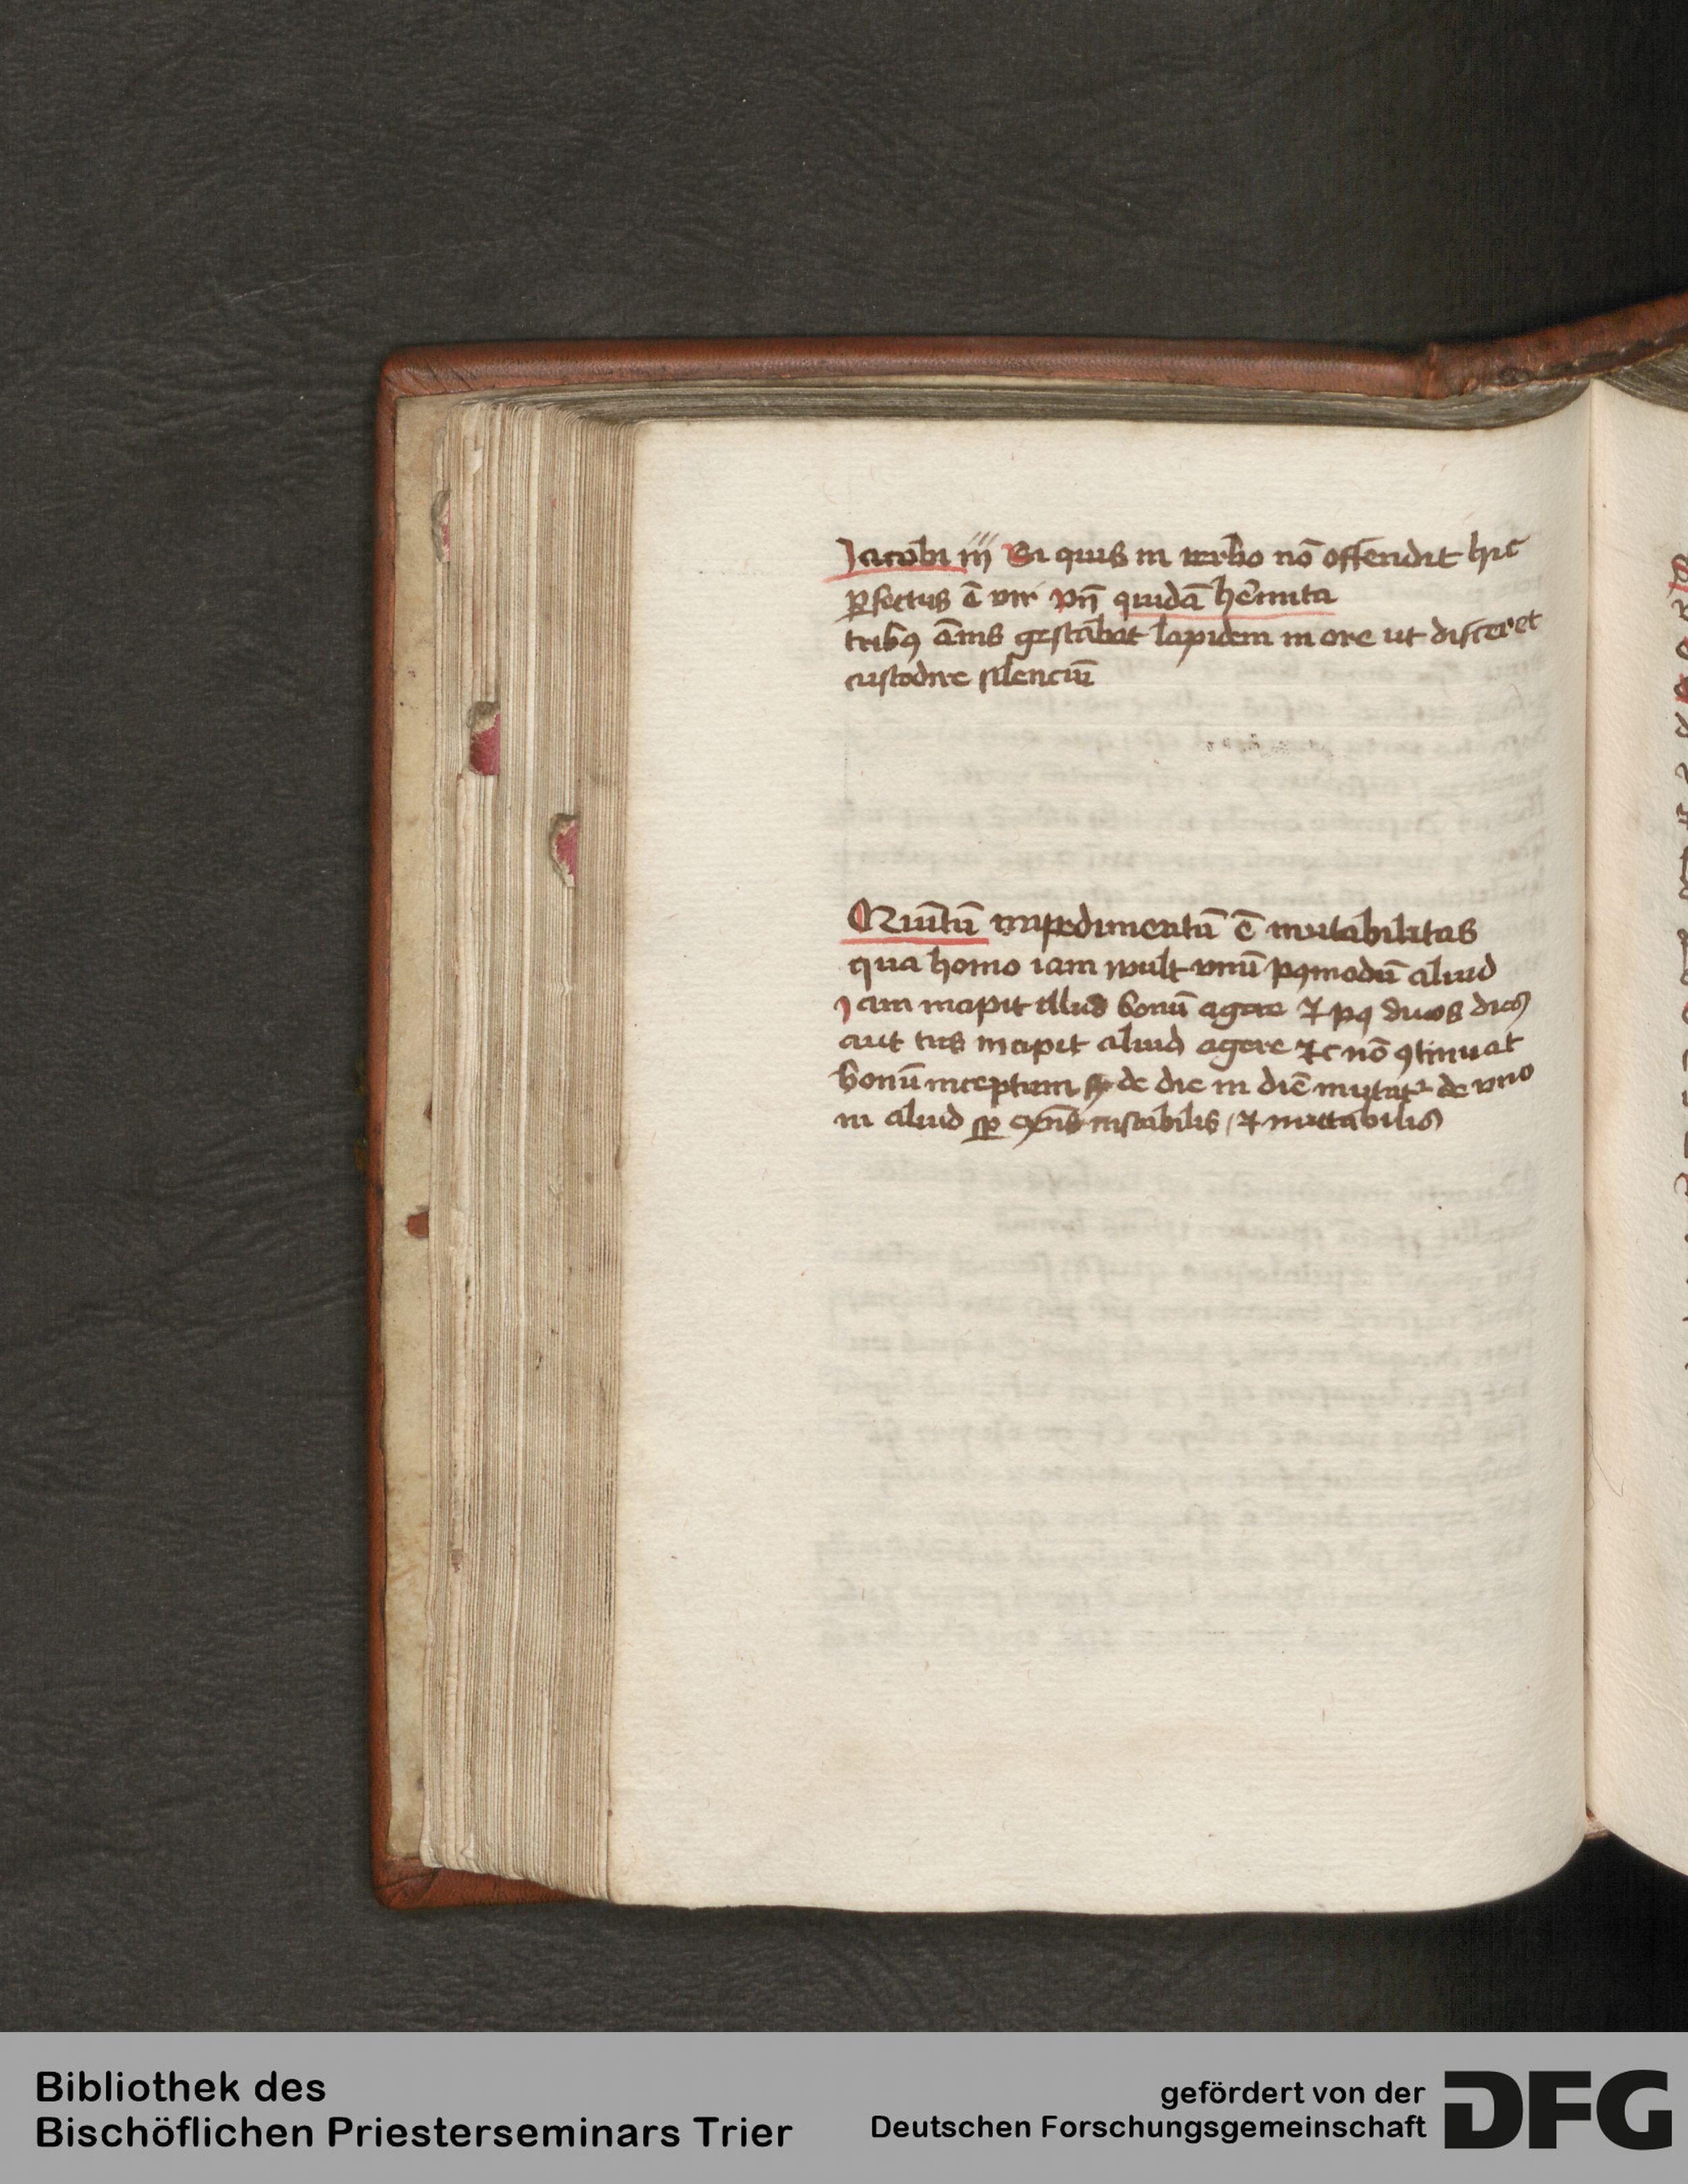 Jacobi iij Si quis in verbo nō offendit hic
ꝑfectus ē vir vn̄ quidā he̅mita
tribꝫ ānis gestabat lapidem in ore ut disceret
custodire silenciū
Quītū impedimentū ē mutabilitas
qua homo iam wult vnū pꝰmodū aliud
Jam incipit illud bonū agere ⁊ pꝰ duos dies
aut tres incipit aliud agere ⁊c nō ꝯtinuat
bonū inceptum de die in diē mutatᷣ de vno
in aliud sꝑ instabilis / ⁊ muttabilis
Bibliothek des
Bischöflichen Priesterseminars Trier
gefördert von der
Deutschen Forschungsgemeinschaft
DFG